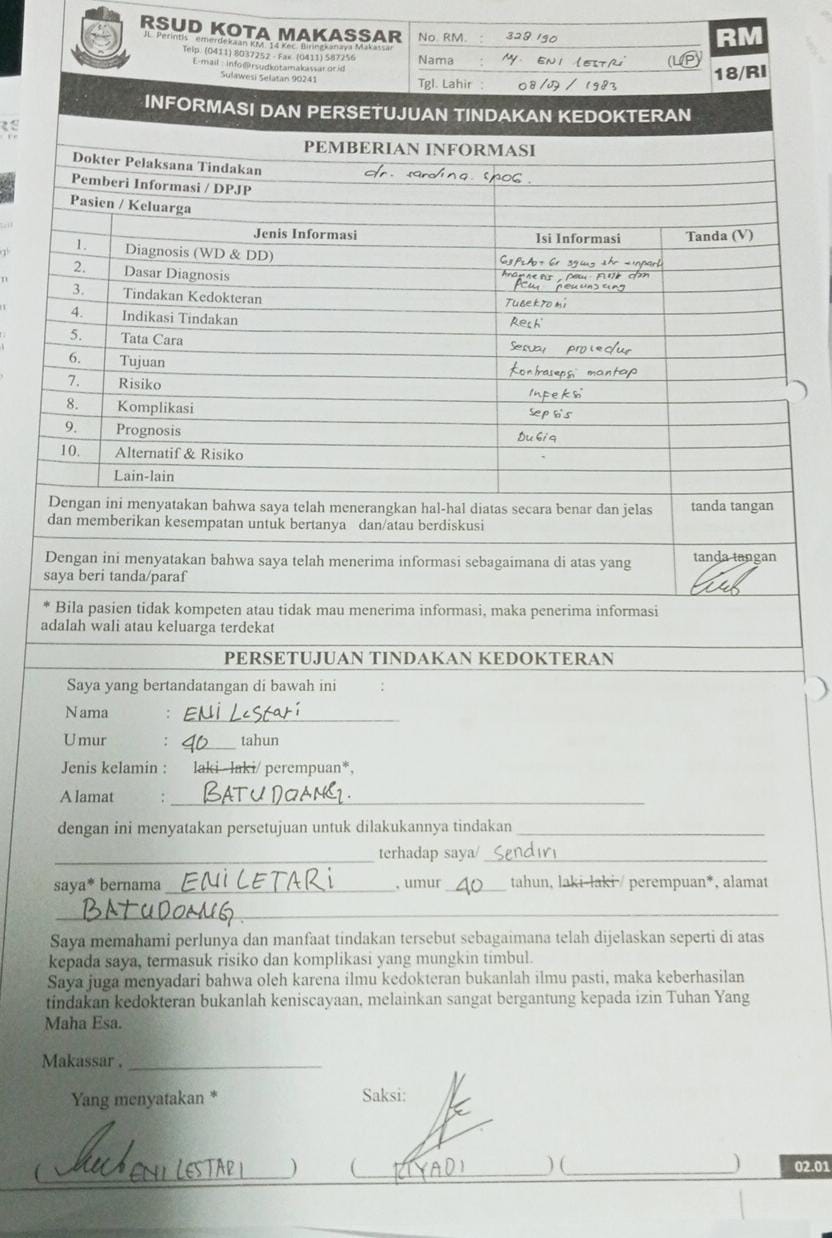 RSUD KOTA MAKASSAR
JL. Perintis emerdekaan KM. 14 Kec. Biringkanaya Makassar
Telp. (0411) 8037252 - Fax. (0411) 587256
E-mail : info@rsudkotamakassar.or.id
Sulawesi Selatan 90241
No. RM. : 328190
Nama : Ny. ENI LESTRI (L/P)
Tgl. Lahir : 08/07/1983
RM
18/RI
INFORMASI DAN PERSETUJUAN TINDAKAN KEDOKTERAN
PEMBERIAN INFORMASI
Dokter Pelaksana Tindakan dr. sardina. SpOG.
Pemberi Informasi / DPJP
Pasien / Keluarga
Jenis Informasi Isi Informasi Tanda (V)
1. Diagnosis (WD & DD)
2. Dasar Diagnosis dan penunjang
3. Tindakan Kedokteran Tubektomi
4. Indikasi Tindakan
5. Tata Cara Sesuai prosedur
6. Tujuan kontrasepsi mantap
7. Risiko Infeksi
8. Komplikasi Sepsis
9. Prognosis Dubia
10. Alternatif & Risiko -
Lain-lain
Dengan ini menyatakan bahwa saya telah menerangkan hal-hal diatas secara benar dan jelas tanda tangan
dan memberikan kesempatan untuk bertanya dan/atau berdiskusi
Dengan ini menyatakan bahwa saya telah menerima informasi sebagaimana di atas yang tanda tangan
saya beri tanda/paraf
* Bila pasien tidak kompeten atau tidak mau menerima informasi, maka penerima informasi
adalah wali atau keluarga terdekat
PERSETUJUAN TINDAKAN KEDOKTERAN
Saya yang bertandatangan di bawah ini :
Nama : ENI LeStari
Umur : 40 tahun
Jenis kelamin : laki-laki/ perempuan*,
Alamat : BATUDOANG.
dengan ini menyatakan persetujuan untuk dilakukannya tindakan
terhadap saya/ Sendiri
saya* bernama ENI LETARI, umur 40 tahun, laki-laki/ perempuan*, alamat
BATUDOANG
Saya memahami perlunya dan manfaat tindakan tersebut sebagaimana telah dijelaskan seperti di atas
kepada saya, termasuk risiko dan komplikasi yang mungkin timbul.
Saya juga menyadari bahwa oleh karena ilmu kedokteran bukanlah ilmu pasti, maka keberhasilan
tindakan kedokteran bukanlah keniscayaan, melainkan sangat bergantung kepada izin Tuhan Yang
Maha Esa.
Makassar ,
Yang menyatakan * Saksi:
( ENI LESTARI ) ( RIYADI ) ( )
02.01